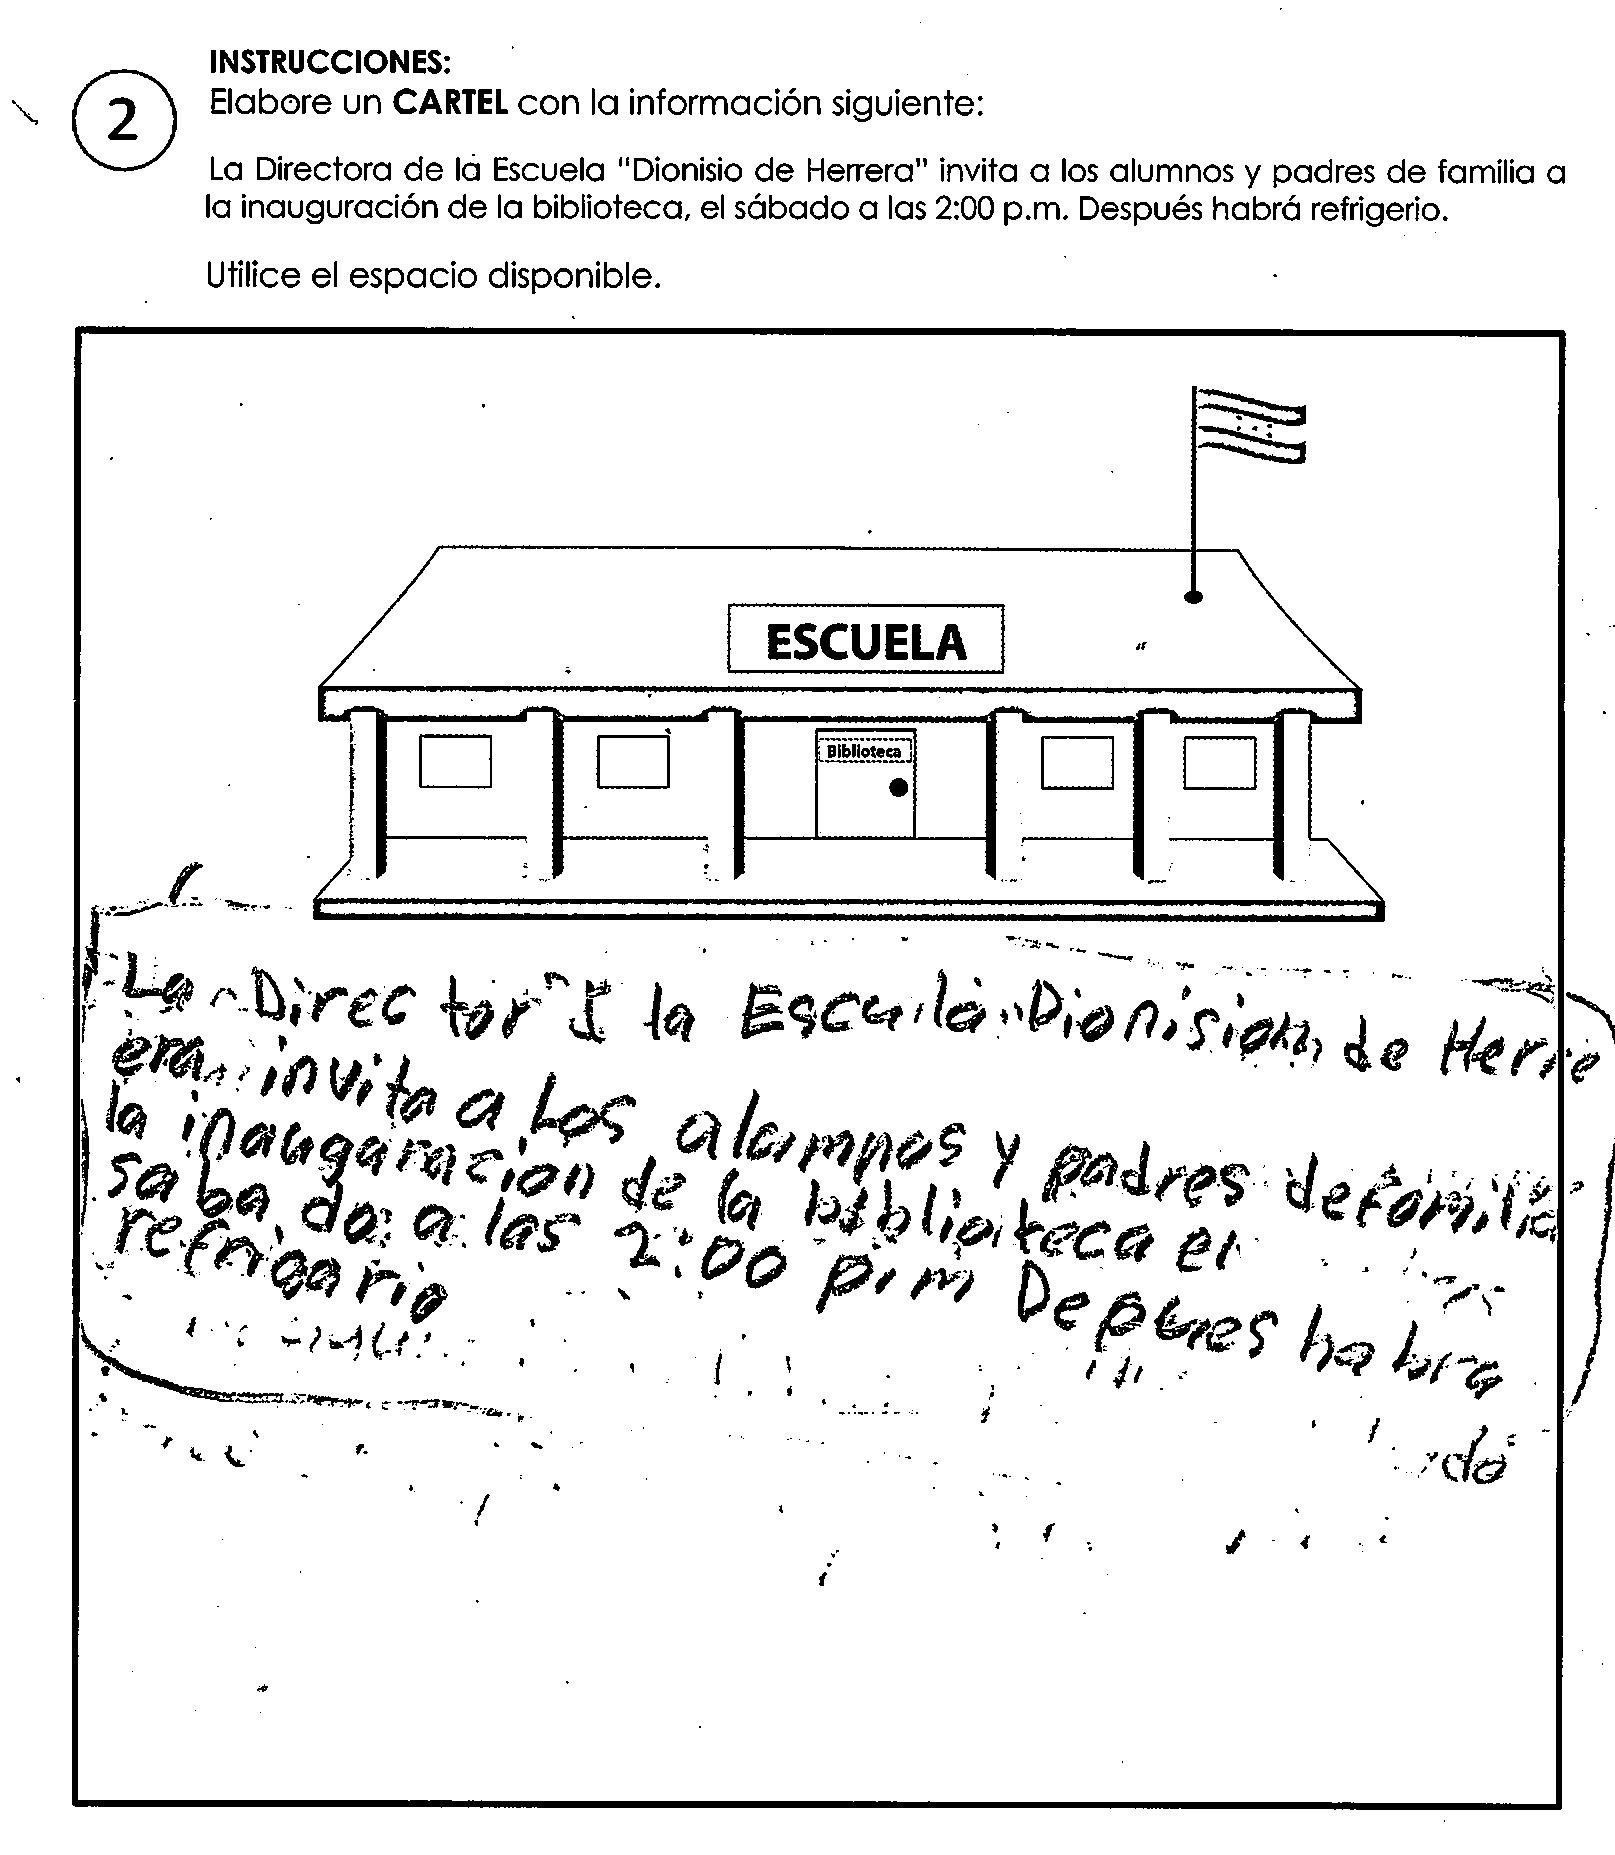 INSTRUCCIONES:
2
Elabore un CARTEL con la información siguiente:
La Directora de la Escuela "Dionisio de Herrera" invita a los alumnos y padres de familia a
la inauguración de la biblioteca, el sábado a las 2:00 p.m. Después habrá refrigerio.
Utilice el espacio disponible.
ESCUELA
Biblioteca
La Director la Escuila "Dionision de Herre
era" invita a Los alumnos y padres de familia
la inaugaracion de la biblioteca el
saba do a las 2:00 p.m Depues habra
refrigario
do